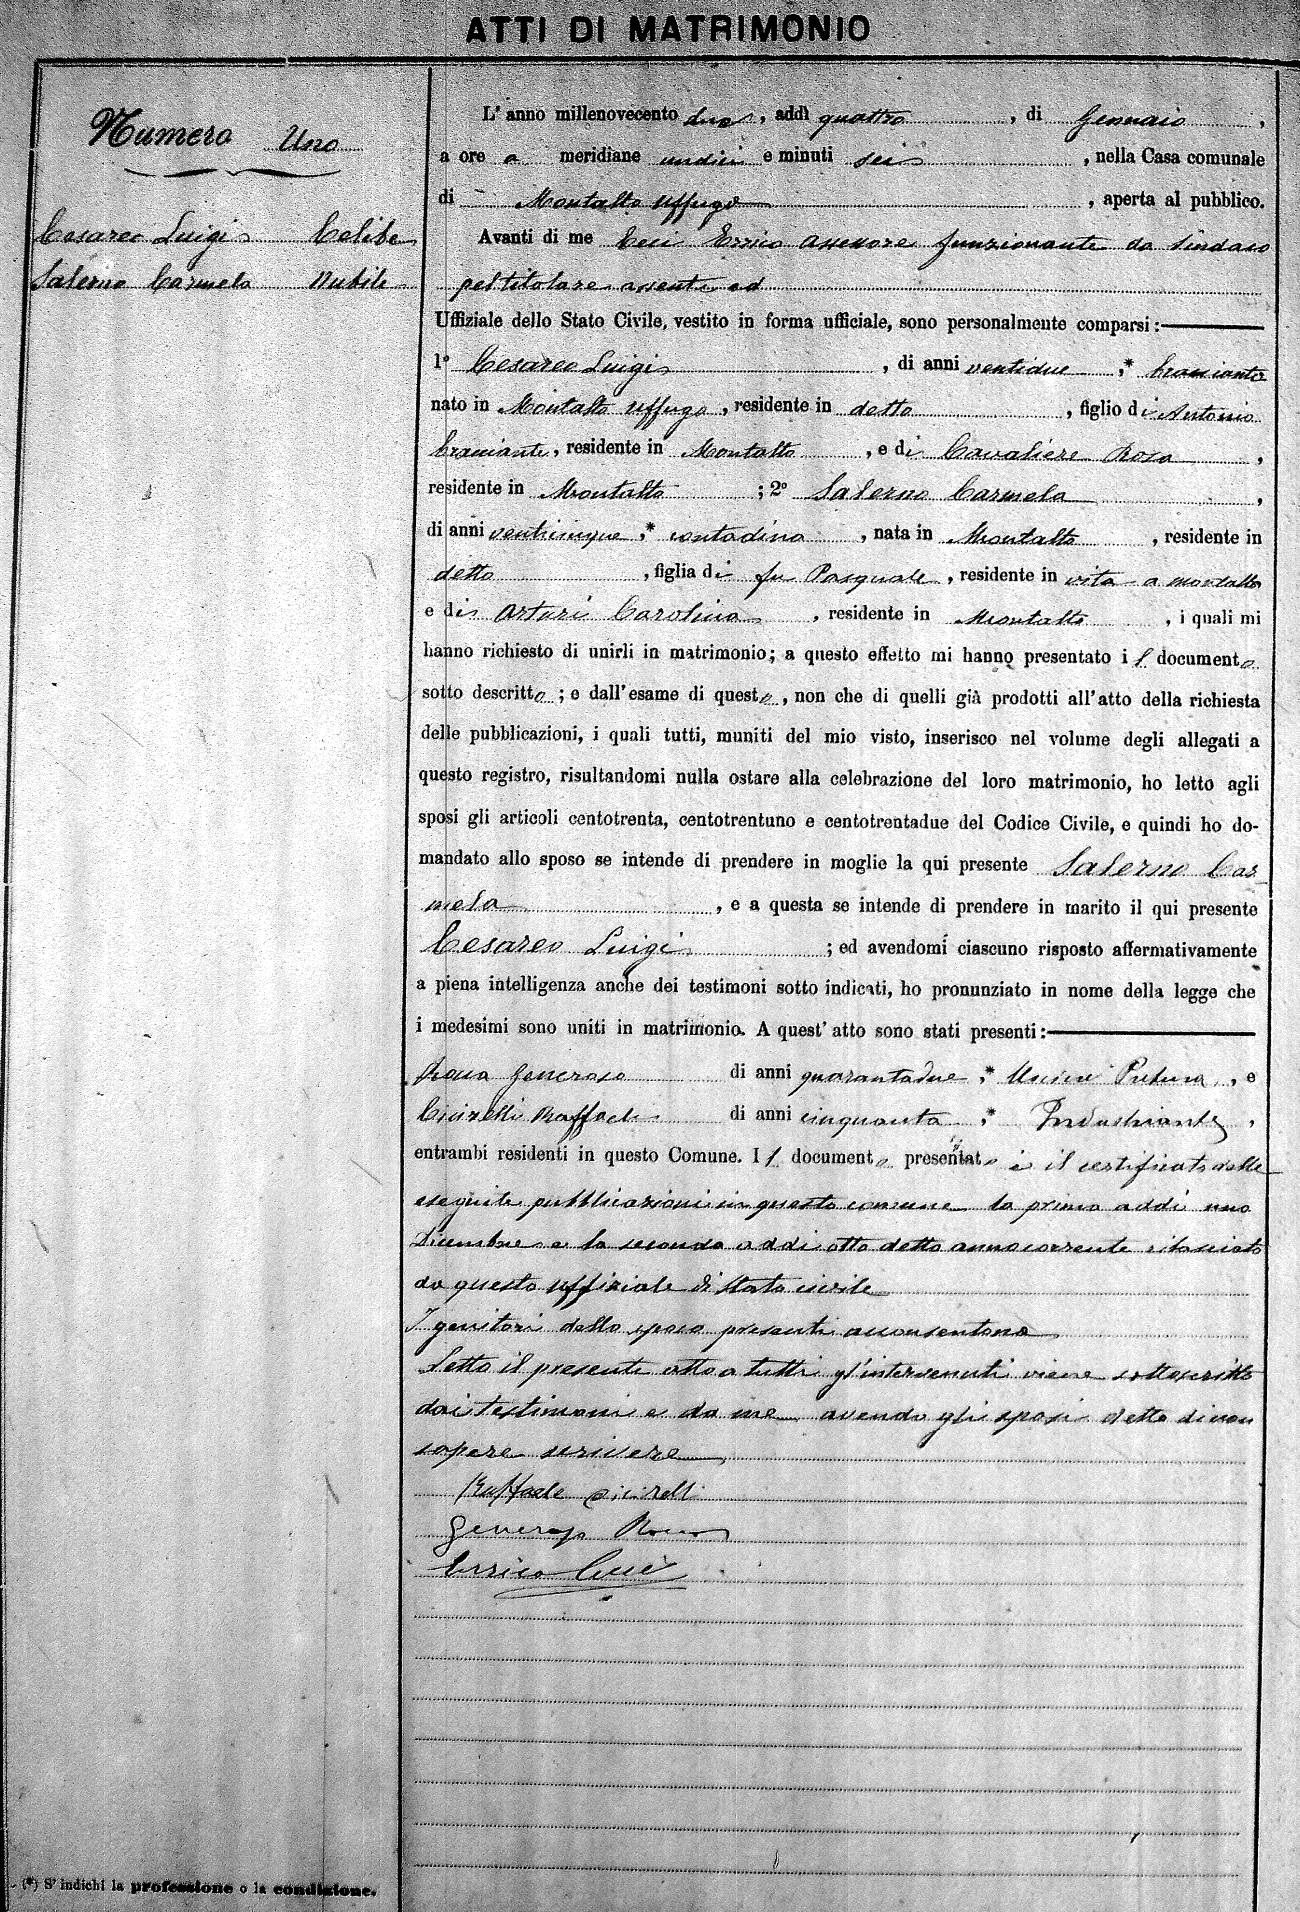 ATTI DI MATRIMONIO
Numero Uno
Cesareo Luigi Celibe
Salerno Carmela Nubile
L' anno millenovecento due, addì quattro, di Gennaio,
a ore a meridiane undici e minuti sei, nella Casa comunale
di Montalto Uffugo, aperta al pubblico.
Avanti di me Ceci Errico assessore funzionante da Sindaco
pel titolare assente ed
Uffiziale dello Stato Civile, vestito in forma ufficiale, sono personalmente comparsi:
1º Cesareo Luigi, di anni ventidue,* bracciante
nato in Montalto Uffugo, residente in detto, figlio di Antonio
bracciante, residente in Montalto, e di Cavaliere Rosa,
residente in Montalto; 2º Salerno Carmela,
di anni venticinque,* contadina, nata in Montalto, residente in
detto, figlia di fu Pasquale, residente in vita a Montalto
e di Arturi Carolina, residente in Montalto, i quali mi
hanno richiesto di unirli in matrimonio; a questo effetto mi hanno presentato il documento
sotto descritto; e dall'esame di questo, non che di quelli già prodotti all'atto della richiesta
delle pubblicazioni, i quali tutti, muniti del mio visto, inserisco nel volume degli allegati a
questo registro, risultandomi nulla ostare alla celebrazione del loro matrimonio, ho letto agli
sposi gli articoli centotrenta, centotrentuno e centotrentadue del Codice Civile, e quindi ho do-
mandato allo sposo se intende di prendere in moglie la qui presente Salerno Car
mela, e a questa se intende di prendere in marito il qui presente
Cesareo Luigi; ed avendomi ciascuno risposto affermativamente
a piena intelligenza anche dei testimoni sotto indicati, ho pronunziato in nome della legge che
i medesimi sono uniti in matrimonio. A quest' atto sono stati presenti:
Generoso di anni quarantadue,* Usciere Pretura, e
Cicirelli Raffaele di anni cinquanta,* Industriante,
entrambi residenti in questo Comune. Il documento presentato è il certificato delle
eseguite pubblicazioni in questo comune la prima addì uno
Dicembre e la seconda addì otto detto anno corrente rilasciato
da questo uffiziale di stato civile
I genitori dello sposo presenti acconsentono
Letto il presente atto a tutti gl'intervenuti viene sottoscritto
dai testimoni e da me avendo gli sposi detto di non
sapere scrivere
Raffaele Cicirelli
Generoso
Errico Ceci
(*) S' indichi la professione o la condizione.